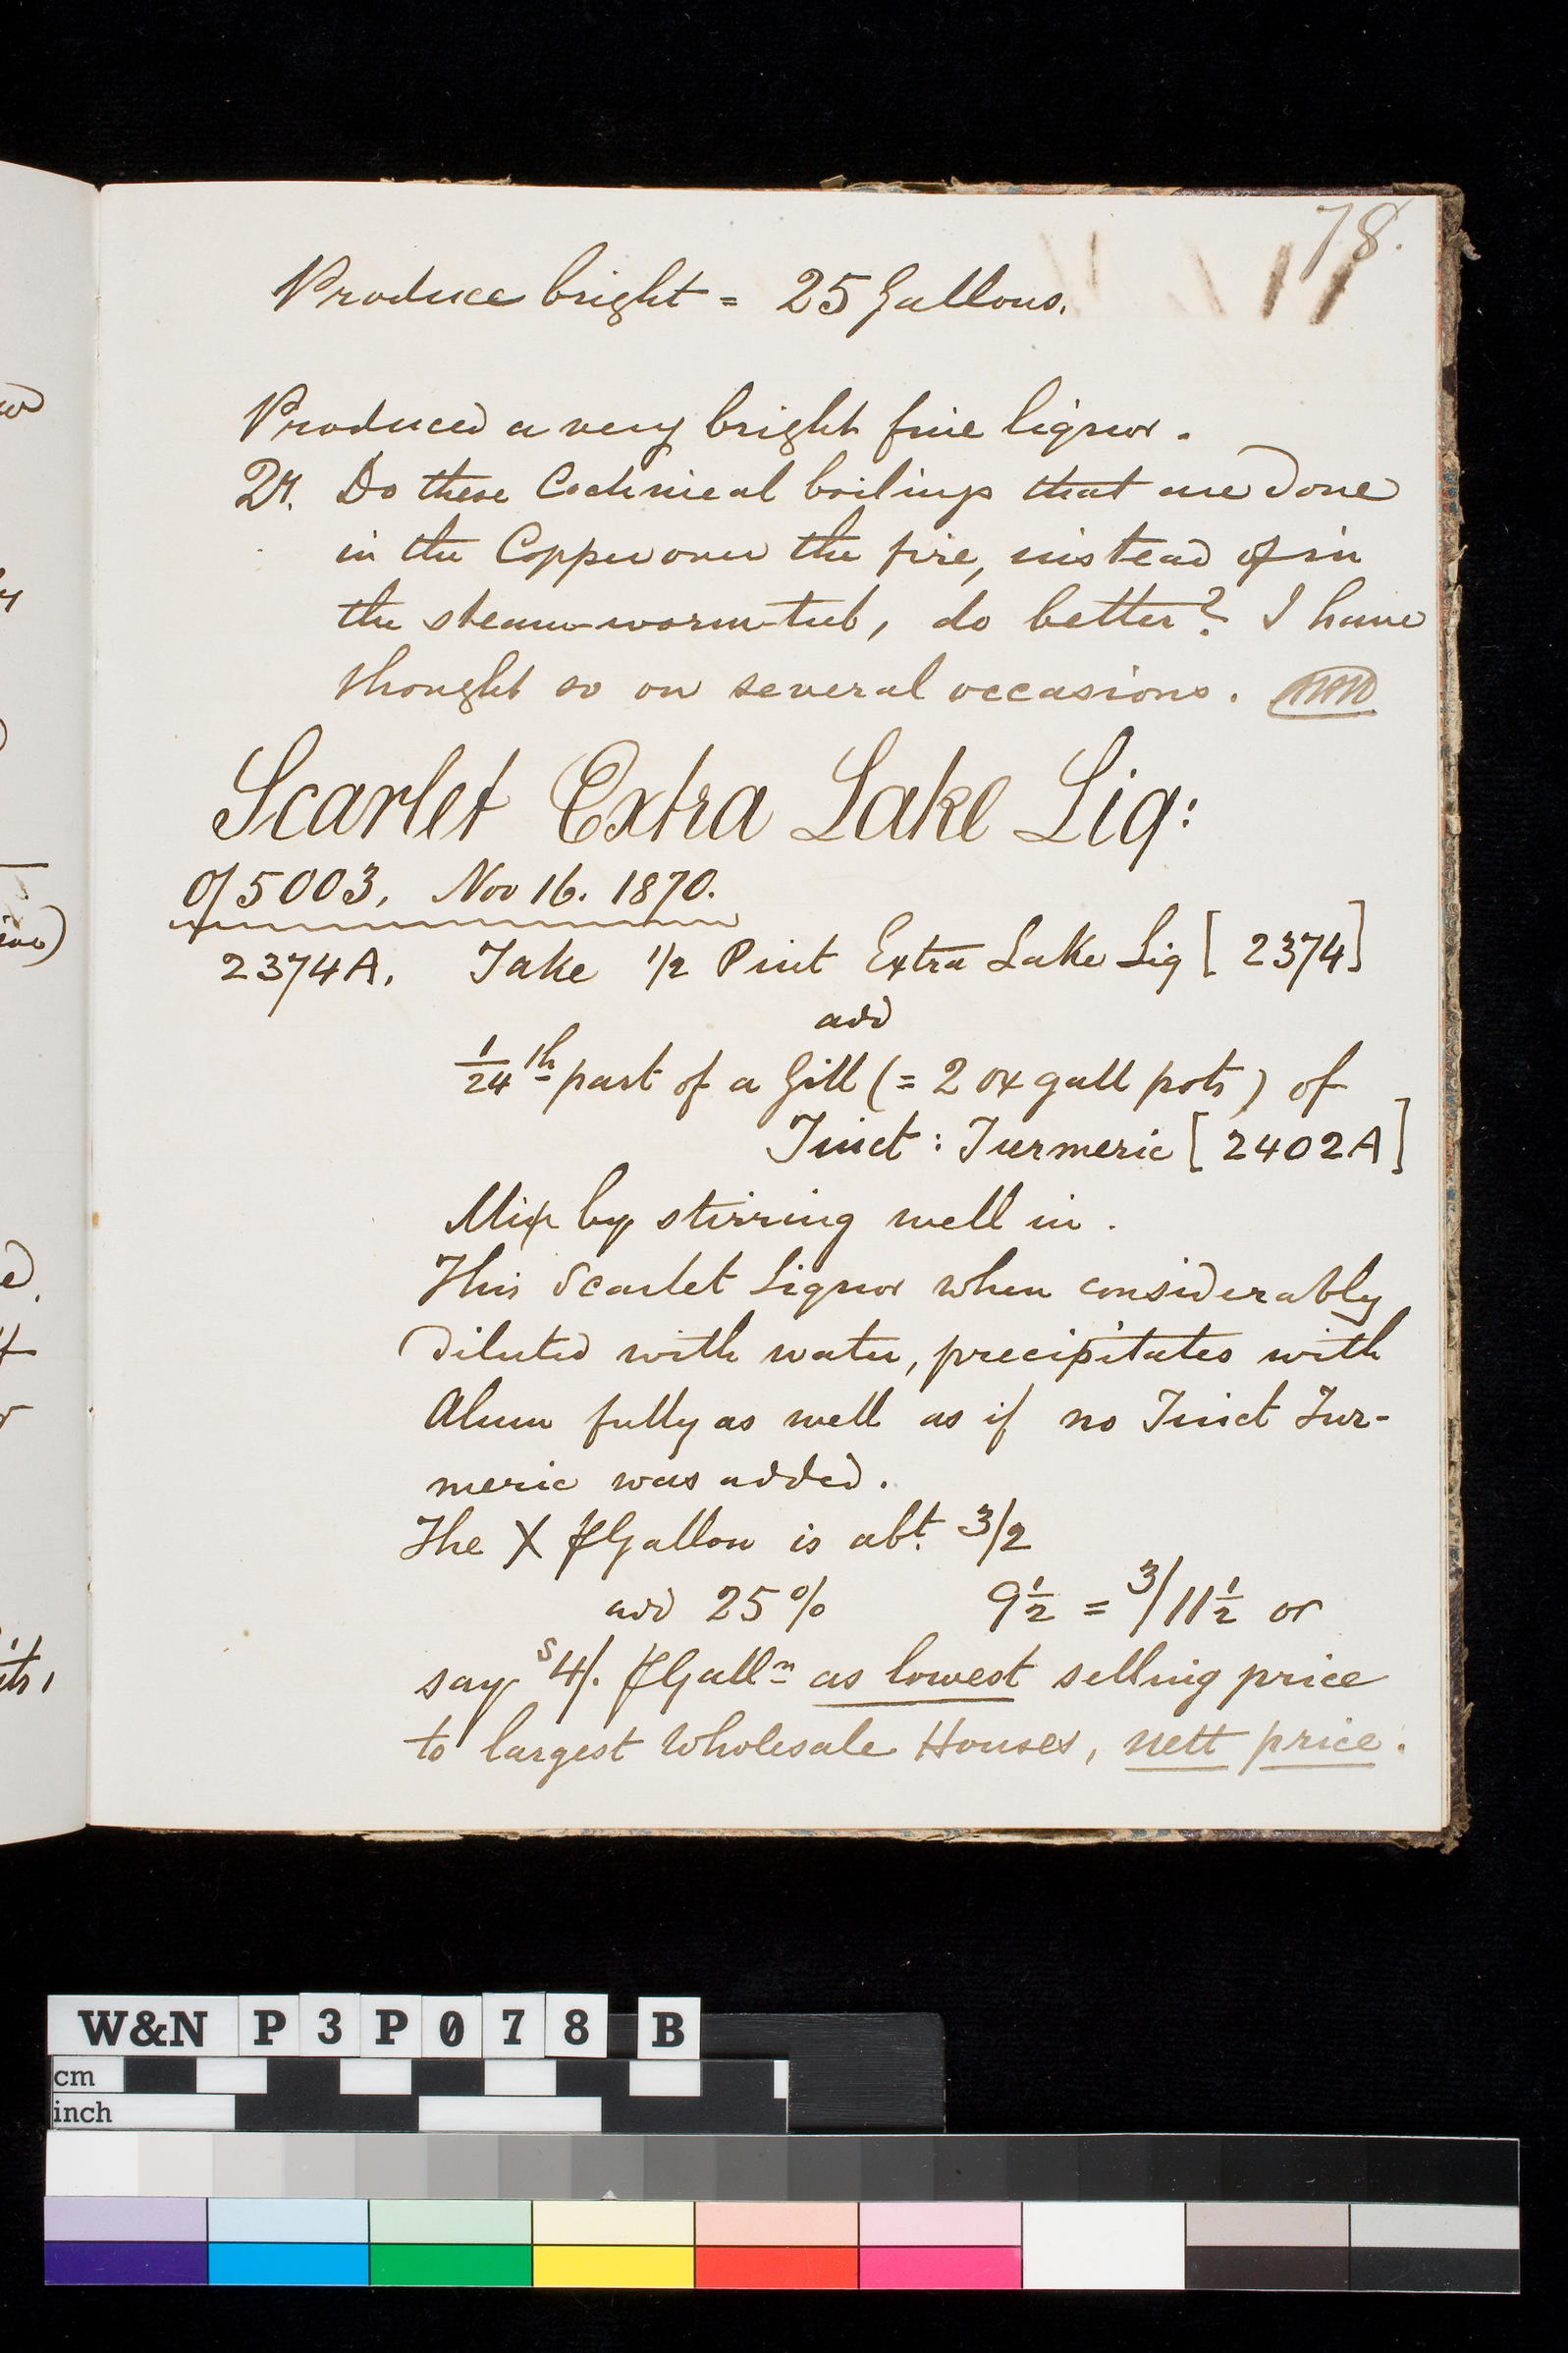 78.
Produce bright = 25 Gallons.
Produced a very bright fine liquor.
Qy. Do these Cochineal boilings that are done
in the Copper over the fire, instead of in
the steam-worm-tub, do better? I have
thought so on several occasions.
Scarlet Extra Lake Liq:
O/5003, Nov 16. 1870.
2374A. Take 1/2 Pint Extra Lake Liq [2374]
add
1/24th part of a Gill (= 2 ox gall pots) of
Tinct: Turmeric [2402A]
Mix by stirring well in.
This Scarlet Liquor when considerably
diluted with water, precipitates with
Alum fully as well as if no Tinct Tur-
meric was added.
The X ⅌ Gallon is abt. 3/2
add 25% 9½ = 3/11½ or
say s4/. ⅌ Galln as lowest selling price
to largest Wholesale Houses, nett price.
W&N P3P078 B
cm
inch